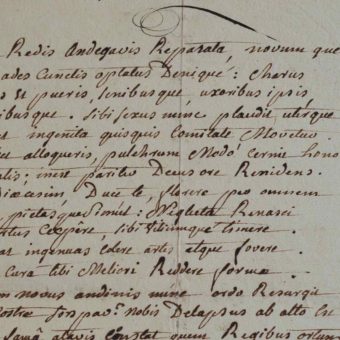 Redis Andegavis Reparata, novum que
ades Cunctis optatus Denique: Charus
se pueris, senibusque, uxoribus ipsis
ibusque. sibi sexus nunc plaudit utérque
ingenita quisquis Comitate Movetur
alloqueris, pulchrum Modò cernis hono
alis; inest pariter Decus ore Renidens.
Dioecesim, Duce te, florere per omnem
pietasque simul: Neglecta Renasci
rtus Coepere, sibi vitiumque timere.
as ingenuas edere artes atque fovere.
Cura tibi Meliori Reddere forma
m novus andinis nunc ordo Resurgit
ostrae nobis Delapsus ab alto est
famâ atavis Constat quem Regibus ortum